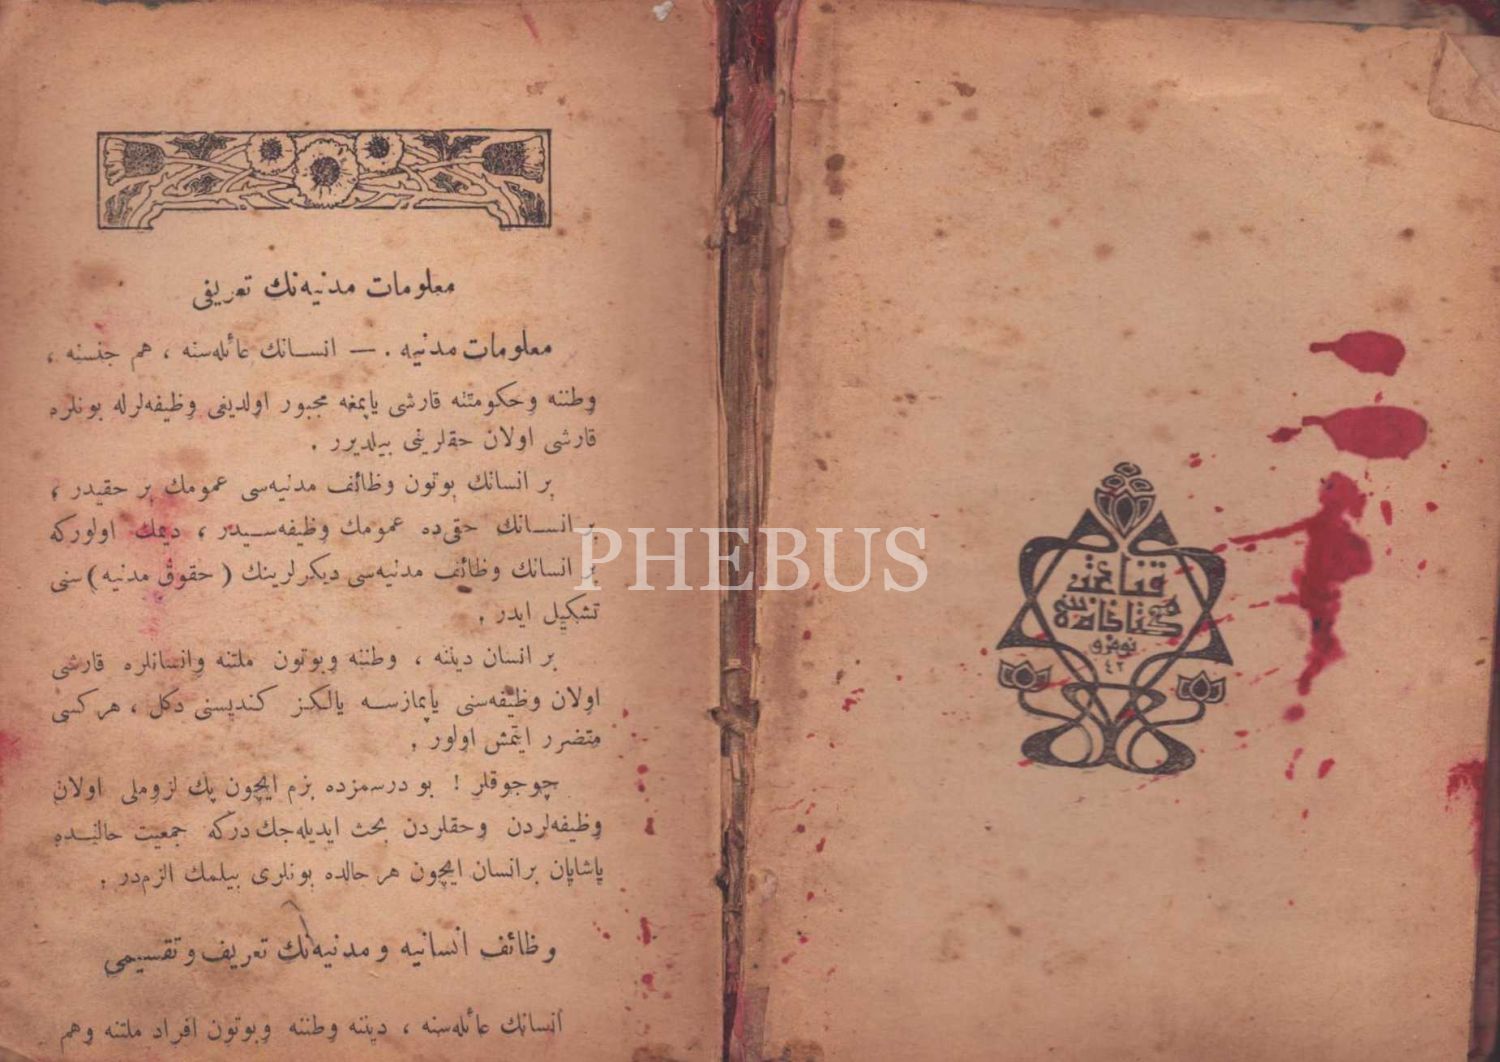 قناعت
كتابخانه‌سی
نومرو
٤٢
معلومات مدنیه‌نك تعریفی
معلومات مدنیه . — انسانك عائله‌سنه ، هم جنسنه ،
وطننه وحكومتنه قارشی یاپمغه مجبور اولدیغی وظیفه‌لرله بونلره
قارشی اولان حقلرینی بیلدیرر .
بر انسانك بوتون وظائف مدنیه‌سی عمومك بر حقیدر ،
بر انسانك حقی‌ده عمومك وظیفه‌سیدر ، دیمك اولورکه
بر انسانك وظائف مدنیه‌سی دیکرلرینك ( حقوق مدنیه ) سنی
تشکیل ایدر .
بر انسان دیننه ، وطننه وبوتون ملتنه وانسانلره قارشی
اولان وظیفه‌سنی یاپمازسه یالکز کندیسنی دکل ، هرکسی
متضرر ایتمش اولور .
چوجوقلر ! بو درسمزده بزم ایچون پك لزوملی اولان
وظیفه‌لردن وحقلردن بحث ایدیله‌جك‌درکه جمعیت حالنده
یاشایان برانسان ایچون هر حالده بونلری بیلمك الزم‌در .
وظائف انسانیه و مدنیه‌نك تعریف و تقسیمی
انسانك عائله‌سنه ، دیننه وطننه وبوتون افراد ملتنه وهم
PHEBUS